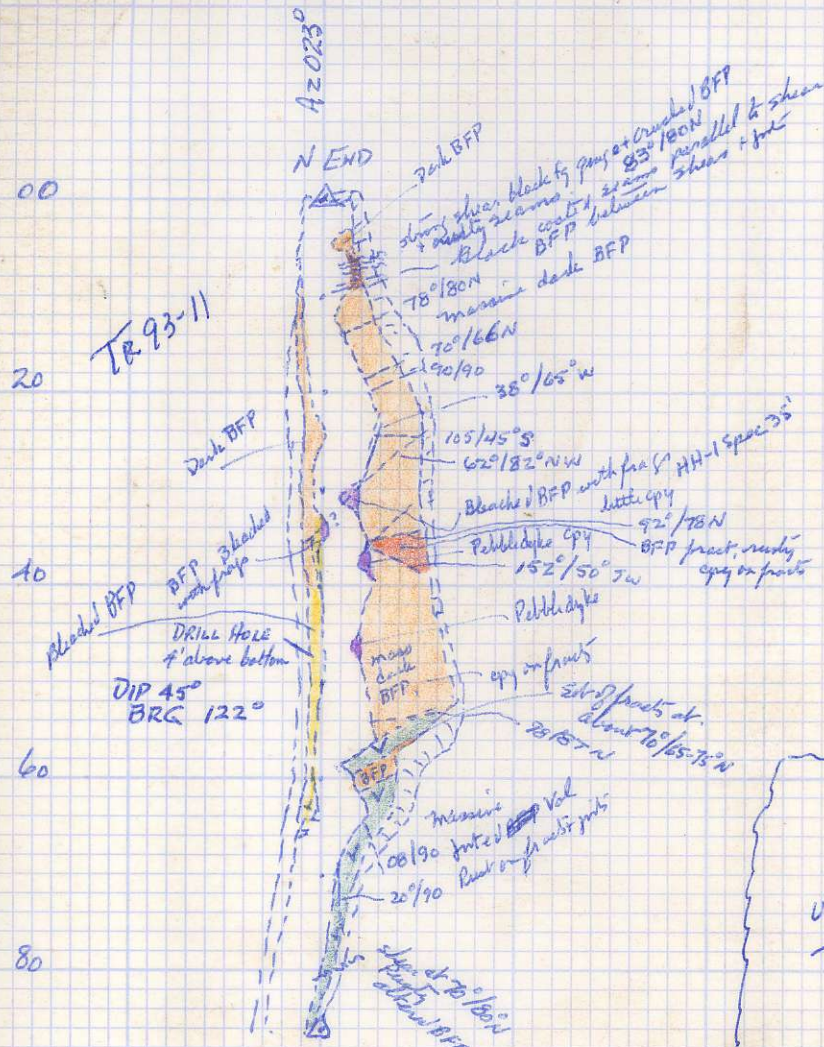 Az 023°
N END
00
Dark BFP
strong shear black fg gouge + crushed BFP
+ rusty seams 83°/80N
Black coated seams parallel to shear
BFP between shear + joint
78°/80N
massive dark BFP
TR 93-11
70°/66N
90/90
20
38°/65°W
Dark BFP
105/45°S
62°/82°NW
Bleached BFP with frags HH-1 Spec 35'
little cpy
92°/78N
BFP fract, rusty
cpy on fracts
Pebbledyke cpy
152°/50°SW
?
BFP Bleached
with frags
40
Bleached BFP
Pebbledyke
DRILL HOLE
4' above bottom
DIP 45°
BRG 122°
mass
dark
BFP
cpy on fracts
Set of fracts at
about 70°/65-75°N
60
BFP
Massive
jointed Vol
08/90
Rust on fracts + joints
20°/90
80
shear at 70°/80°N
Rusty
altered BFP